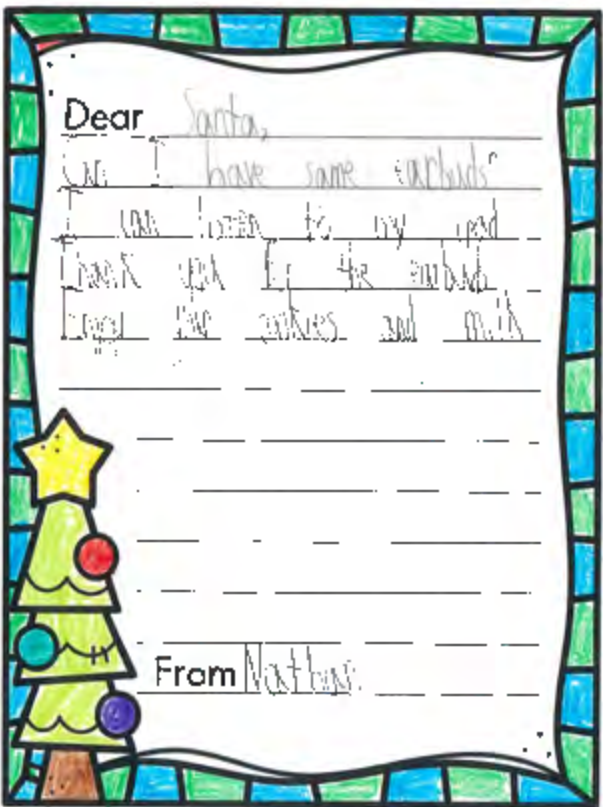 Dear Santa,
Can I have some earbuds
I can listen to my ipad
Thank you for the earbuds
Enjoy the cookies and milk
From Nathan